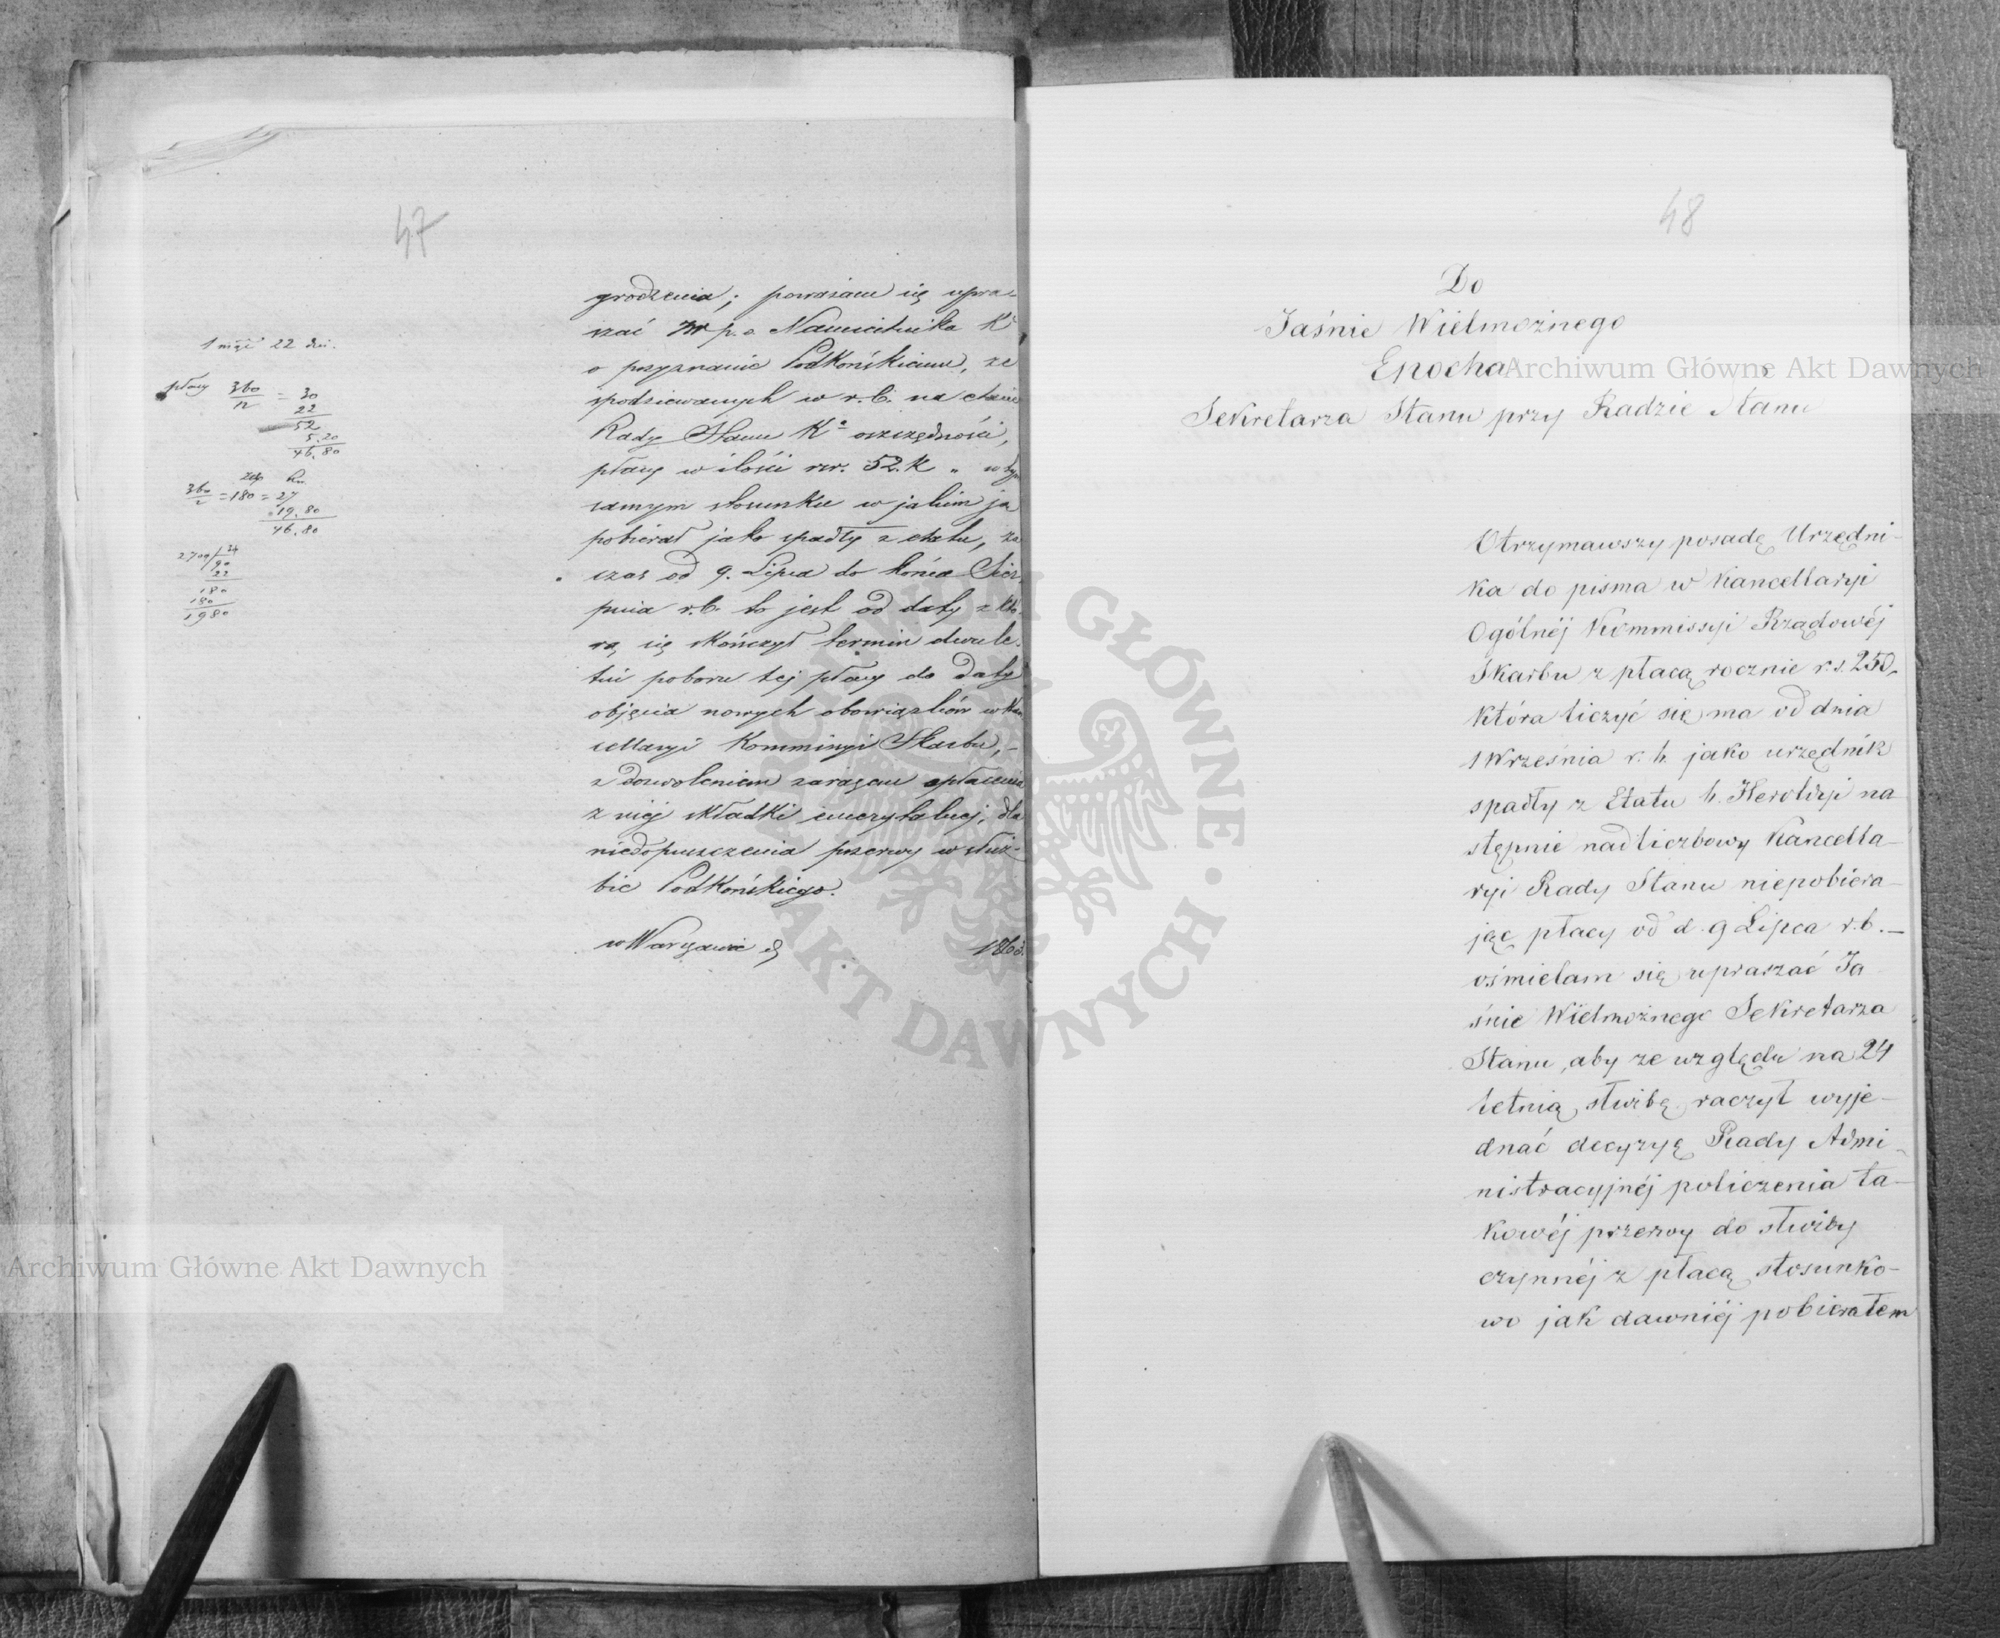 47
1 mieś 22 dni.
płacy 360/12 = 30
22
52
5.20
46,80
360/2 = 180 = 27
19,80
46,80
2700
90
22
180
180
1980
grodzenia; poważam się upra-
szać JW p. o. Namiestnika K
o przyznanie Podkońskiemu, ze
spodziewanych w r. b. na etacie
Rady Stanu Kr oszczędności,
płacy w ilości rsr. 52. k „ w tym
samym stosunku w jakim ją
pobierał jako spadły z etatu, za
czas od 9. Lipca do końca Sier-
pnia r. b. to jest od daty z któ-
rą się skończył termin dwule-
tni poboru tej płacy do daty
objęcia nowych obowiązków w Kan
cellaryi Kommissyi Skarbu, –
z dozwoleniem zarazem opłacenia
z niej składki emerytalnej, dla
niedopuszczenia przerwy w służ-
bie Podkońskiego.
w Warszawie d 1863.
48
Do
Jaśnie Wielmożnego
Epocha
Sekretarza Stanu przy Radzie Stanu
Otrzymawszy posadę Urzędni-
ka do pisma w Kancellaryi
Ogólnéj Kommissyi Rządowéj
Skarbu z płacą rocznie r. s. 250,
która liczyć się ma od dnia
1 Września r. b. jako urzędnik
spadły z Etatu b. Heroldyi na
stępnie nadliczbowy Kancella-
ryi Rady Stanu niepobiera-
jąc płacy od d. 9 Lipca r. b. –
ośmielam się upraszać Ja
śnie Wielmożnego Sekretarza
Stanu, aby ze względu na 24
letnią służbę raczył wyje-
dnać decyzyę Rady Admi-
nistracyjnéj policzenia ta-
kowéj przerwy do służby
czynnéj z płacą stosunko-
wo jak dawniéj pobierałem
Archiwum Główne Akt Dawnych
Archiwum Główne Akt Dawnych
ARCHIWUM GŁÓWNE AKT DAWNYCH